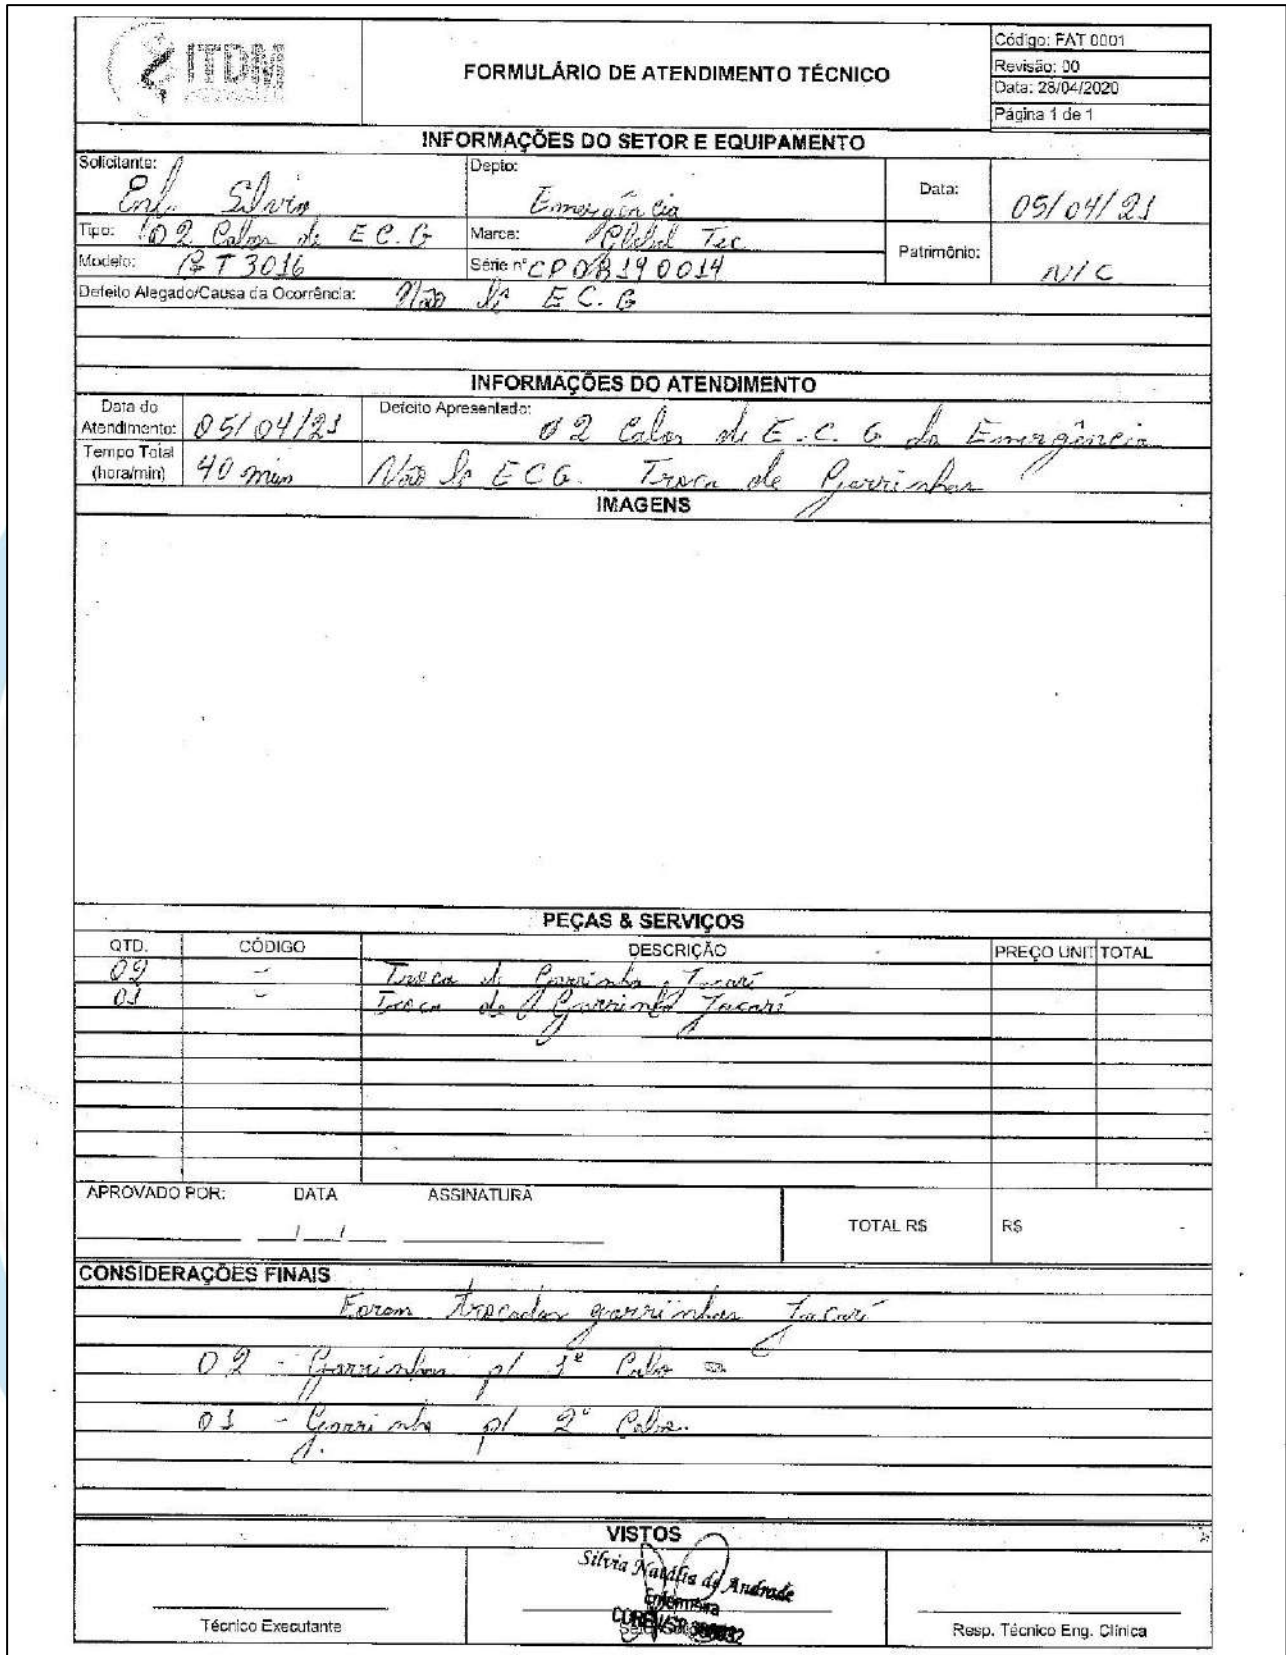 ITDM
FORMULÁRIO DE ATENDIMENTO TÉCNICO
Código: FAT 0001
Revisão: 00
Data: 28/04/2020
Página 1 de 1
INFORMAÇÕES DO SETOR E EQUIPAMENTO
Solicitante: Enf. Silvia
Depto: Emergência
Data: 05/04/21
Tipo: 02 Cabos de E.C.G
Marca: Global Tec
Modelo: GT 3016
Série nº CPOB190014
Patrimônio: N/C
Defeito Alegado/Causa da Ocorrência: Não lê E.C.G
INFORMAÇÕES DO ATENDIMENTO
Data do Atendimento: 05/04/21
Defeito Apresentado: 02 Cabos de E.C.G da Emergência
Tempo Total (hora/min) 40 min
Não lê ECG. Troca de Garrinhas
IMAGENS
PEÇAS & SERVIÇOS
QTD. CÓDIGO DESCRIÇÃO PREÇO UNIT TOTAL
02 - Troca de Garrinha Jacaré
01 - Troca de Garrinha Jacaré
APROVADO POR: DATA ASSINATURA
TOTAL R$ R$ -
CONSIDERAÇÕES FINAIS
Foram trocadas garrinhas Jacaré
02 - Garrinhas p/ 1º Cabo
01 - Garrinha p/ 2º Cabo.
VISTOS
Silvia Natália de Andrade
Enfermeira
COREN/SP
Técnico Executante
Resp. Técnico Eng. Clínica